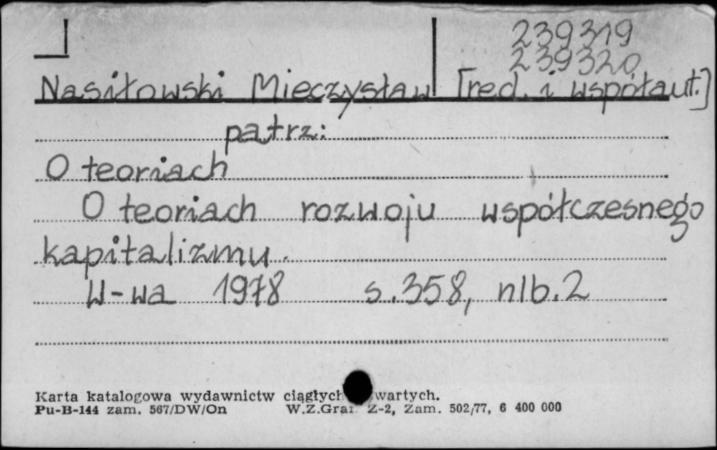 239319
239320
Nasiłowski Mieczysław [red. i współaut.]
patrz:
O teoriach
O teoriach rozwoju współczesnego
kapitalizmu.
W-wa 1978 s.358, nlb.2
Karta katalogowa wydawnictw ciągłych wartych.
Pu-B-144 zam. 567/DW/On W.Z.Graf Z-2, Zam. 502/77, 6 400 000